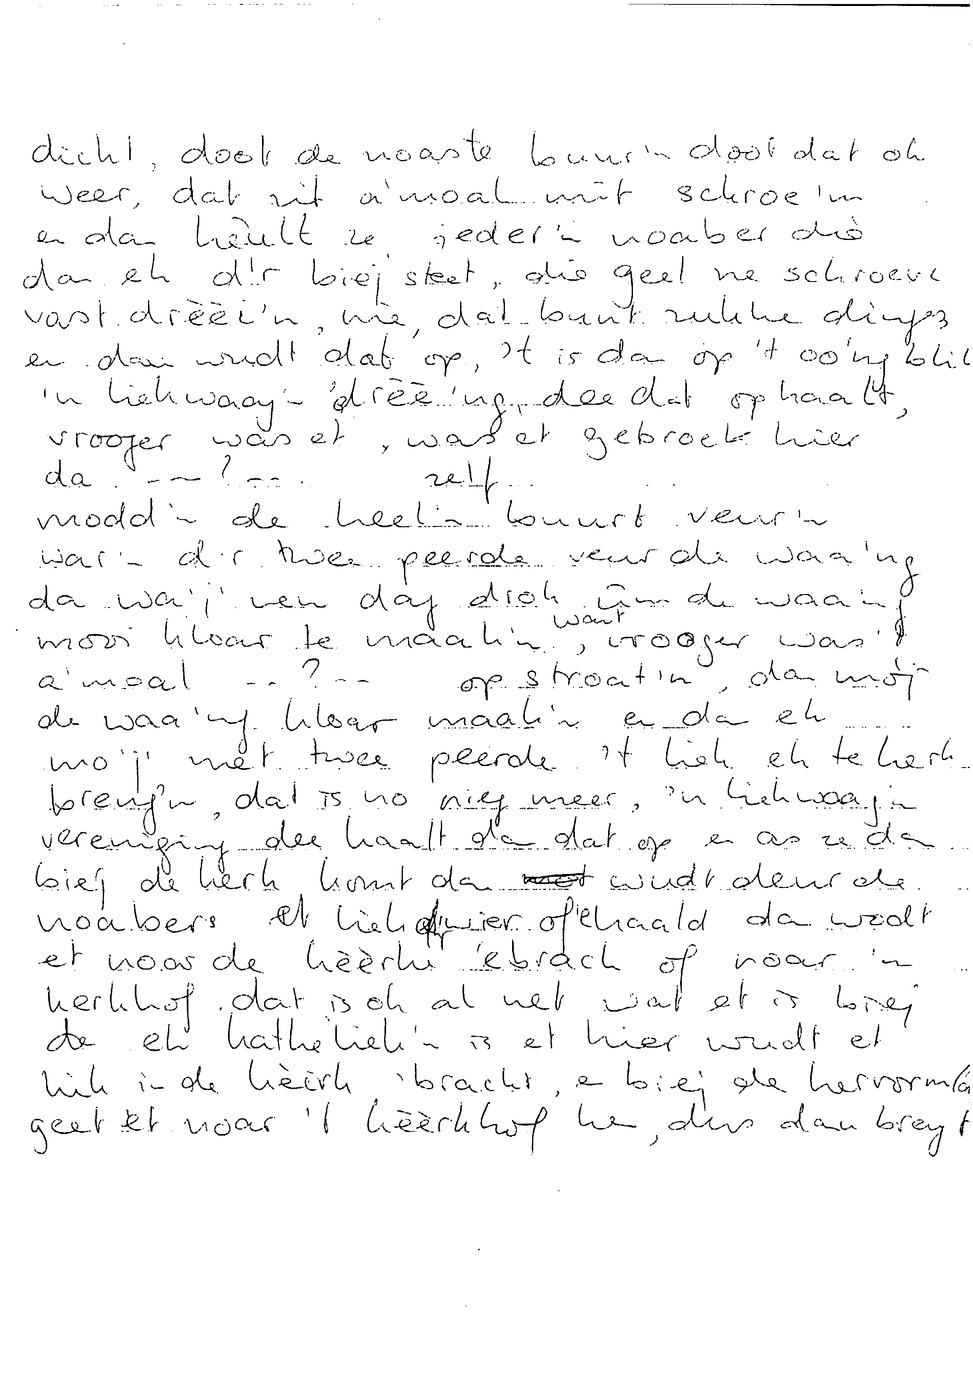 dicht, doot de noaste buur'n doot dat ok
weer, dat zit a'moal mit schroe'm
en dan heult ze ieder'n noaber diè
dan eh d'r biej steet, die geet ne schroeve
vast drèèi'n, nie, dat bunt zukke dinges
en dan wudt dat op, 't is dan op 't oo'ng blik
'n liekwaag'n drèè'ng, dee dat ophaalt,
vrooger was et, was et gebroek hier
da --- ? --- zelf
modd'n de heel'n buurt veur'n
war'n d'r twee peerde veur de waa'ng
da wa'j' nen dag drok üm de waa'ng
mooi kloar te maak'n, want vrooger was't
a'moal --?-- op stroat'n, dan mo'j
de waa'ng kloar maak'n en dan eh
mo'j' met twee peerde 't liek eh te kerk
breng'n, dat is no niej meer, 'n liekwaag'n
vereniging dee haalt dan dat op en as ze dan
biej de kerk komt dan wudt deur de
noabers et liek of'ehaald dan wodt
et noar de kèèrke 'ebrach of noar 'n
kerkhof, dat is ok al net wat et is biej
de eh katheliek'n is et hier wudt et
liek in de kèèrk 'bracht, en biej de hervorm
geet et noar 't kèèrkhof he, dus dan breng t